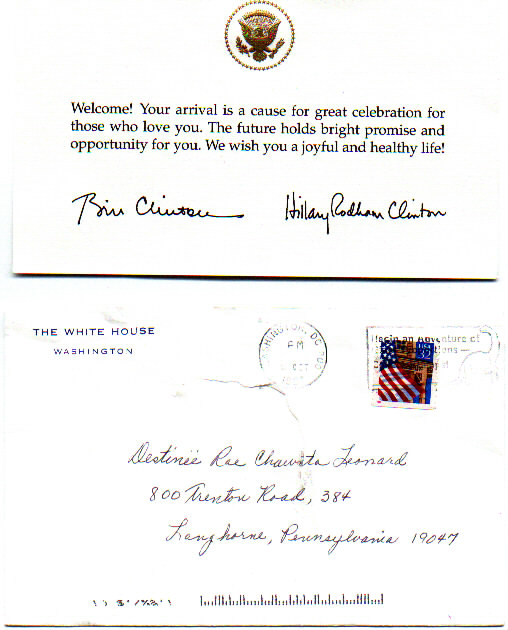 Welcome! Your arrival is a cause for great celebration for
those who love you. The future holds bright promise and
opportunity for you. We wish you a joyful and healthy life!
Bill Clinton Hillary Rodham Clinton
THE WHITE HOUSE
WASHINGTON
WASHINGTON, DC
PM
OCT
an Adventure of
USA
32
Destinée Rae Chawata Leonard
800 Trenton Road, 384
Langhorne, Pennsylvania 19047